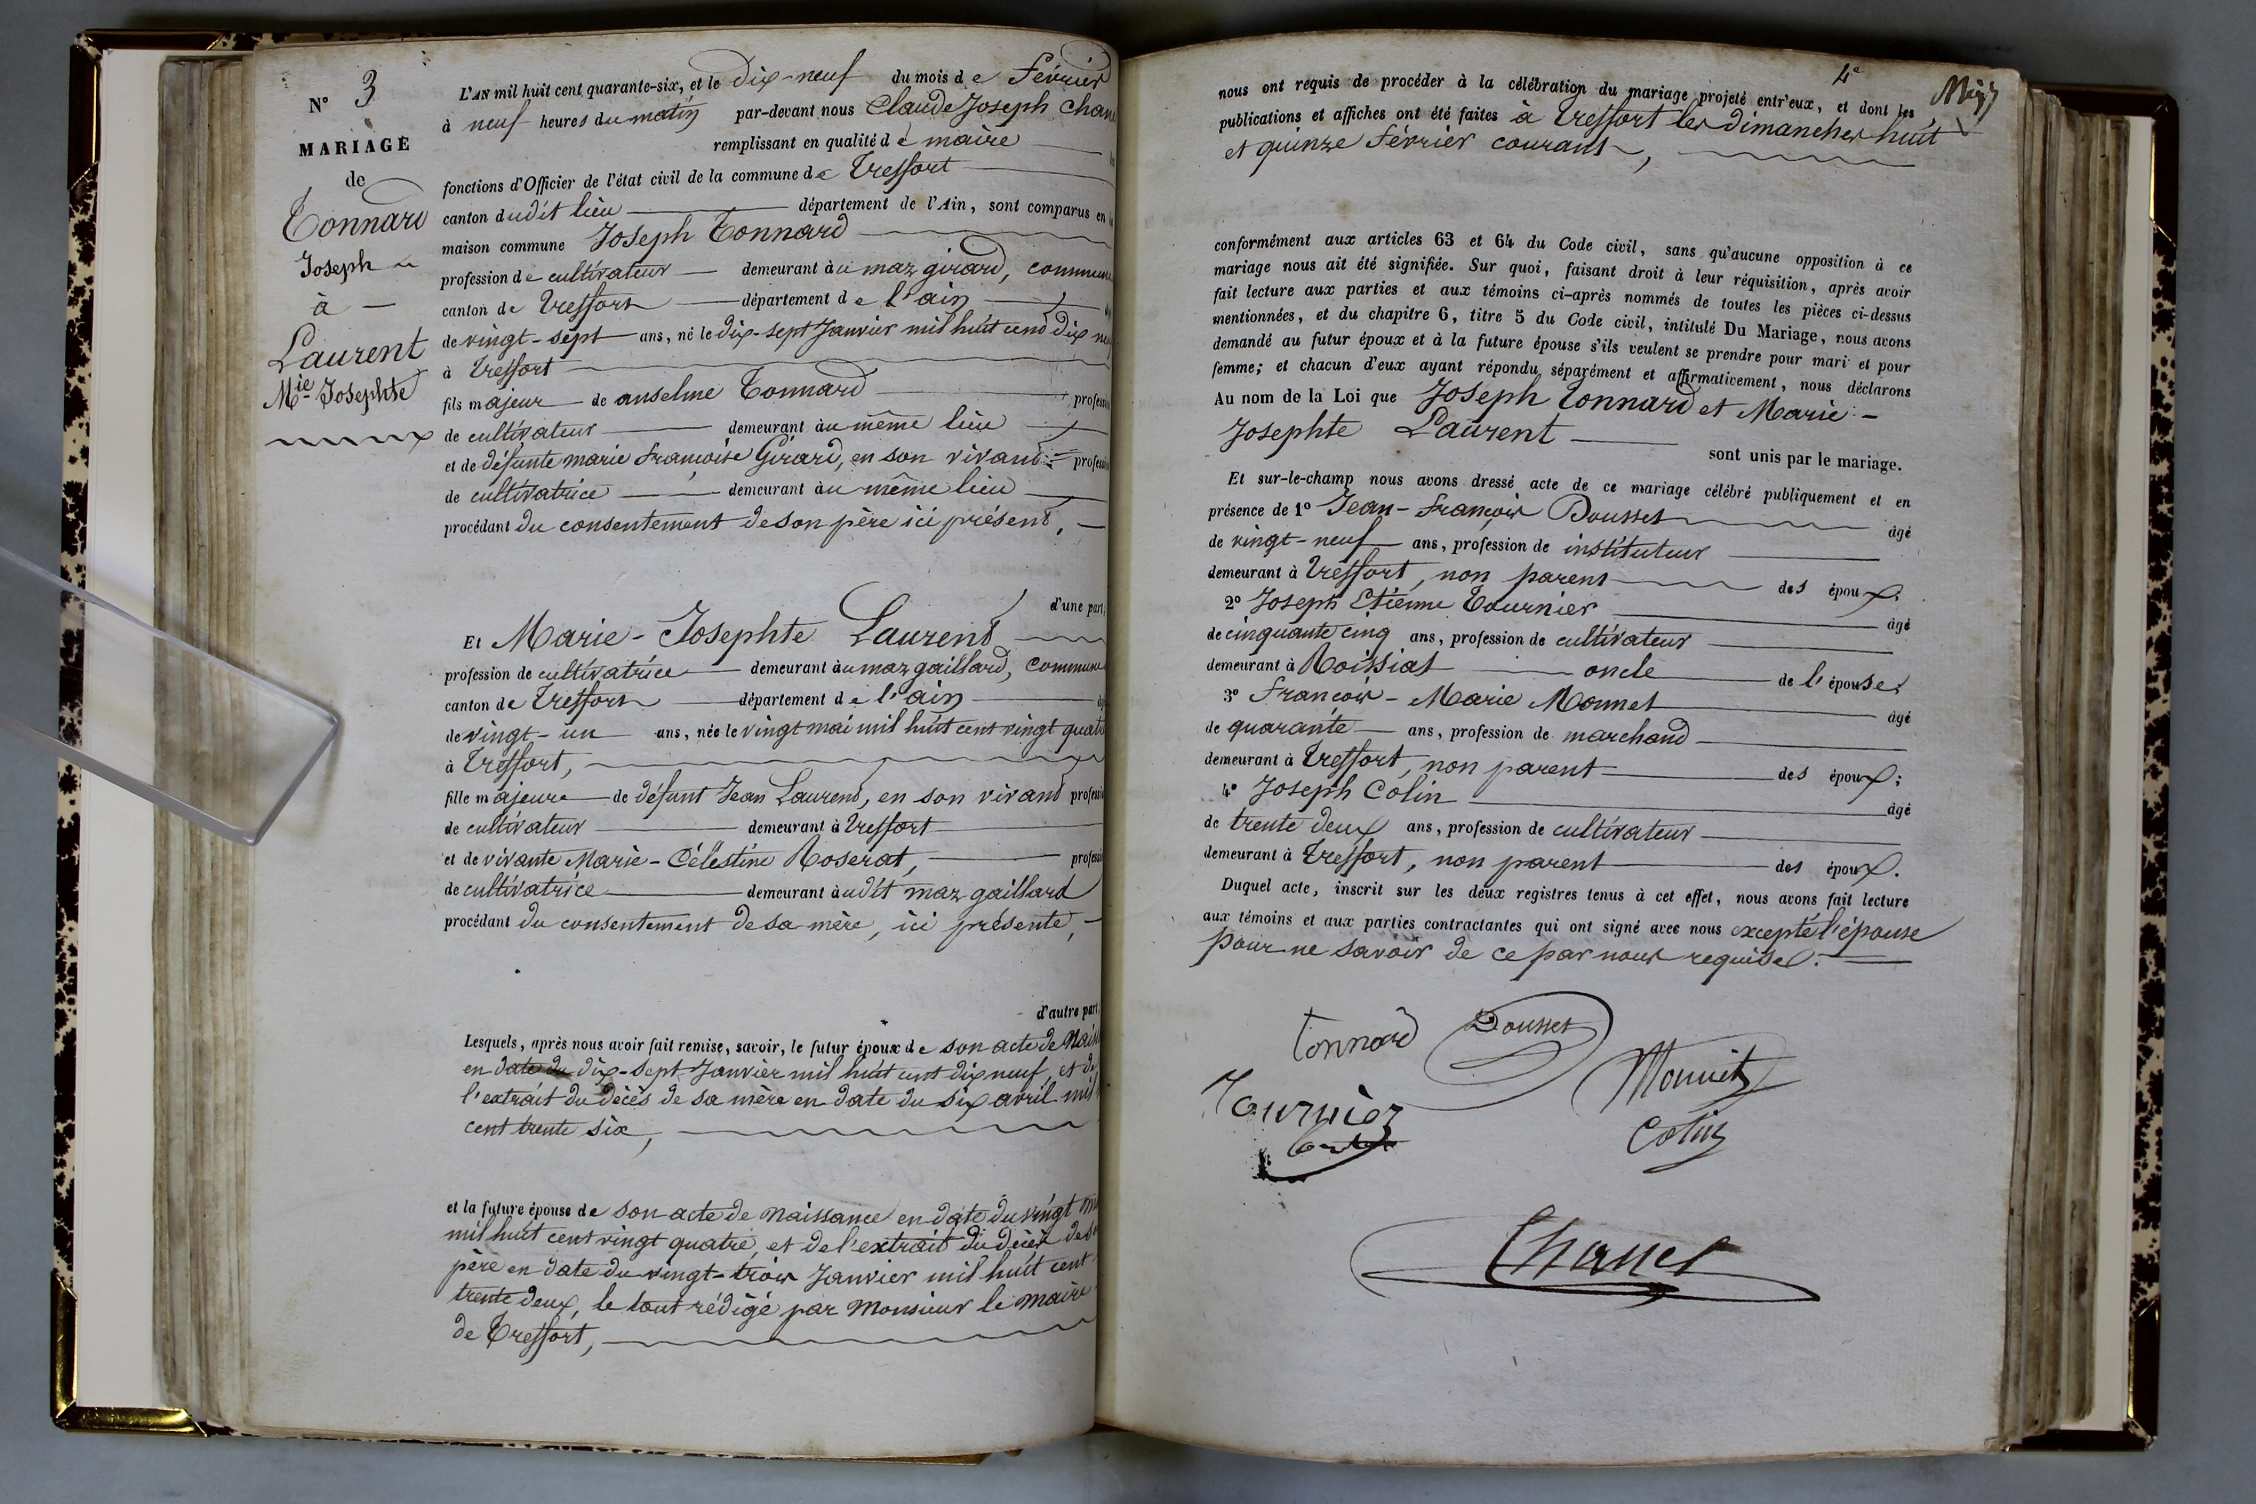 N° 3
MARIAGE
de
Tonnard
Joseph
à
Laurent
Mie Josephte
L'AN mil huit cent quarante-six, et le dix-neuf du mois de Février
à neuf heures du matin par-devant nous Claude Joseph Chan
remplissant en qualité de maire
fonctions d'Officier de l'état civil de la commune de Treffort
canton dudit lieu département de l'Ain, sont comparus en
maison commune Joseph Tonnard
profession de cultivateur demeurant au maz girard, commune
canton de Treffort département de l'ain
de vingt-sept ans, né le dix-sept Janvier mil huit cent dix
à Treffort
fils majeur de anselme Tonnard profess
de cultivateur demeurant au même lieu
et de défunte marie francoise Girard, en son vivant profess
de cultivatrice demeurant au même lieu
procédant du consentement de son père ici présent,
d'une part;
Et Marie-Josephte Laurent
profession de cultivatrice demeurant au maz gaillard, commune
canton de Treffort département de l'ain
de vingt-un ans, née le vingt mai mil huit cent vingt quat
à Treffort,
fille majeure de défunt Jean Laurent, en son vivant profess
de cultivateur demeurant à Treffort
et de vivante Marie-Célestine Roserat, profess
de cultivatrice demeurant audit maz gaillard
procédant du consentement de sa mère, ici présente,
d'autre part
Lesquels, après nous avoir fait remise, savoir, le futur époux de son acte de Nais
en date du dix-sept Janvier mil huit cent dix neuf, et de
l'extrait du décès de sa mère en date du six avril mil
cent trente six,
et la future épouse de son acte de Naissance en date du vingt
mil huit cent vingt quatre, et de l'extrait du décès de
père en date du vingt-trois Janvier mil huit cent
trente deux, le tout rédigé par Monsieur le maire
de Treffort,
4e
nous ont requis de procéder à la célébration du mariage projeté entr'eux, et dont les
publications et affiches ont été faites à Treffort les dimanches huit
et quinze Février courant,
conformément aux articles 63 et 64 du Code civil, sans qu'aucune opposition à ce
mariage nous ait été signifiée. Sur quoi, faisant droit à leur réquisition, après avoir
fait lecture aux parties et aux témoins ci-après nommés de toutes les pièces ci-dessus
mentionnées, et du chapitre 6, titre 5 du Code civil, intitulé Du Mariage, nous avons
demandé au futur époux et à la future épouse s'ils veulent se prendre pour mari et pour
femme; et chacun d'eux ayant répondu séparément et affirmativement, nous déclarons
Au nom de la Loi que Joseph Tonnard et Marie-
Josephte Laurent
sont unis par le mariage.
Et sur-le-champ nous avons dressé acte de ce mariage célébré publiquement et en
présence de 1° Jean-françois Dousset âgé
de vingt-neuf ans, profession de instituteur
demeurant à Treffort, non parent des époux;
2° Joseph Etienne Tournier âgé
de cinquante cinq ans, profession de cultivateur
demeurant à Roissiat oncle de l'épouse;
3° François-Marie Monnet âgé
de quarante ans, profession de marchand
demeurant à Treffort, non parent des époux;
4° Joseph Colin âgé
de trente deux ans, profession de cultivateur
demeurant à Treffort, non parent des époux.
Duquel acte, inscrit sur les deux registres tenus à cet effet, nous avons fait lecture
aux témoins et aux parties contractantes qui ont signé avec nous excepté l'épouse
pour ne savoir de ce par nous requise.
Tonnard Dousset
Monnet
Tournier
Colin
Chanel